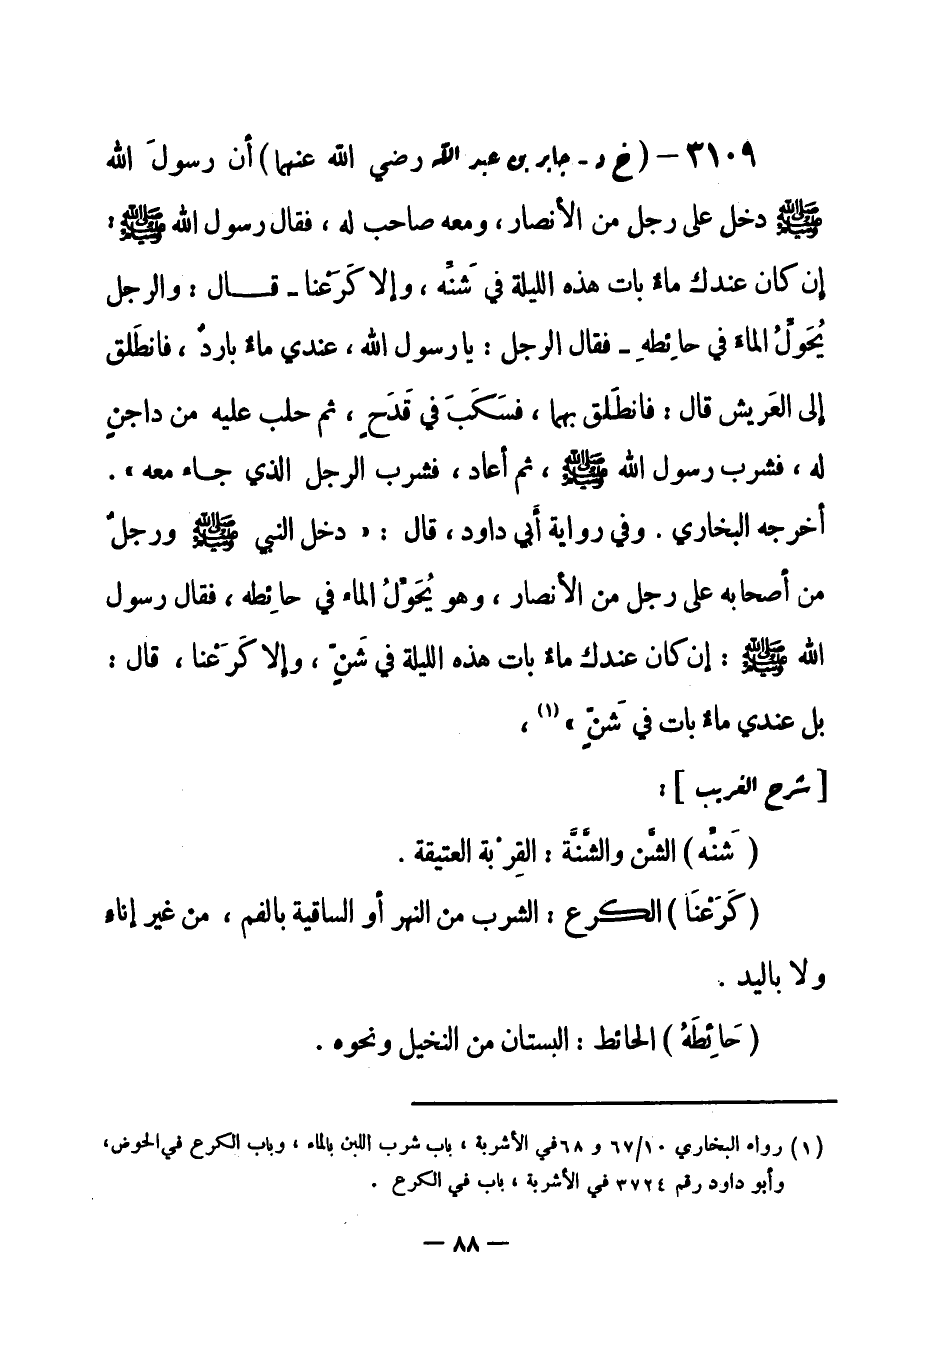 ٣١٠٩ – ( خ د - جابر بن عبد الله رضي الله عنهما ) أن رسولَ الله
ﷺ دخل على رجل من الأنصار ، ومعه صاحب له ، فقال رسول الله ﷺ :
إن كان عندك ماءٌ بات هذه الليلة في شَنَّه ، وإلا كَرَعْنا ـ قـــال : والرجل
يُحَوِّلُ الماءَ في حائِطهِ ـ فقال الرجل : يا رسول الله ، عندي ماءٌ باردٌ ، فانطَلِق
إلى العَرِيش قال : فانطَلَق بهما ، فسَكَبَ في قَدَحٍ ، ثم حلب عليه من داجنٍ
له ، فشرب رسول الله ﷺ ، ثم أعاد ، فشرب الرجل الذي جـاء معه » .
أخرجه البخاري . وفي رواية أبي داود ، قال : « دخل النبي ﷺ ورجلٌ
من أصحابه على رجل من الأنصار ، وهو يُحَوِّلُ الماء في حائِطه ، فقال رسول
الله ﷺ : إن كان عندك ماءٌ بات هذه الليلة في شَنٍّ ، وإلا كَرَعْنا ، قال :
بل عندي ماءٌ بات في شَنٍّ » (١) ،
[ شرح الغريب ] :
( شَنَّه ) الشَّن والشَّنَّة : القِرْبة العتيقة .
( كَرَعْنَا ) الكـرع : الشرب من النهر أو الساقية بالفم ، من غير إناء
ولا باليد .
( حَائِطَهُ ) الحائط : البستان من النخيل ونحوه .
(١) رواه البخاري ٦٧/١٠ و ٦٨ في الأشربة ، باب شرب اللبن بالماء ، وباب الكرع في الحوض،
وأبو داود رقم ٣٧٢٤ في الأشربة ، باب في الكرع .
— ٨٨ —